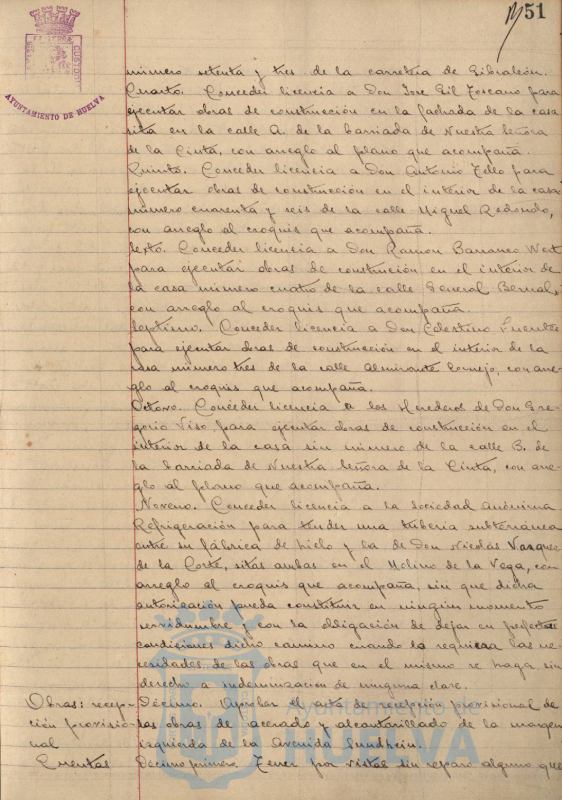 51
CUSTODIA
AYUNTAMIENTO DE HUELVA
número setenta y tres de la carretera de Gibraleón.
Cuarto. Conceder licencia a Don Jose Gil Toscano para
ejecutar obras de construcción en la fachada de la casa
sita en la calle A. de la barriada de Nuestra Señora
de la Cinta, con arreglo al plano que acompaña.
Quinto. Conceder licencia a Don Antonio Tello para
ejecutar obras de construcción en el interior de la casa
número cuarenta y seis de la calle Miguel Redondo,
con arreglo al croquis que acompaña.
Sexto. Conceder licencia a Don Ramon Barranco West
para ejecutar obras de construcción en el interior de
la casa número cuatro de la calle General Bernal,
con arreglo al croquis que acompaña.
Septimo. Conceder licencia a Don Celestino Fuentes
para ejecutar obras de construcción en el interior de la
casa número tres de la calle Almirante Cornejo, con arre-
glo al croquis que acompaña.
Octavo. Conceder licencia a los Herederos de Don Gre-
gorio Viso para ejecutar obras de construcción en el
interior de la casa sin número de la calle B. de
la barriada de Nuestra Señora de la Cinta, con arre-
glo al plano que acompaña.
Noveno. Conceder licencia a la Sociedad Anónima
Refrigeración para tender una tubería subterránea
entre su fábrica de hielo y la de Don Nicolás Vazquez
de la Corte, sitas ambas en el Molino de la Vega, con
arreglo al croquis que acompaña, sin que dicha
autorización pueda constituir en ningún momento
servidumbre y con la obligación de dejar en perfectas
condiciones dicho camino cuando lo requiera las ne-
cesidades de las obras que en el mismo se haga, sin
derecho a indemnización de ninguna clase.
Obras: recep- Décimo. Aprobar el acta de recepción provisional de
ción provisio- las obras de acerado y alcantarillado de la margen
nal izquierda de la Avenida Sundheim.
Cuentas Décimo primero. Tener por vistas sin reparo alguno que
Ayuntamiento de
HUELVA